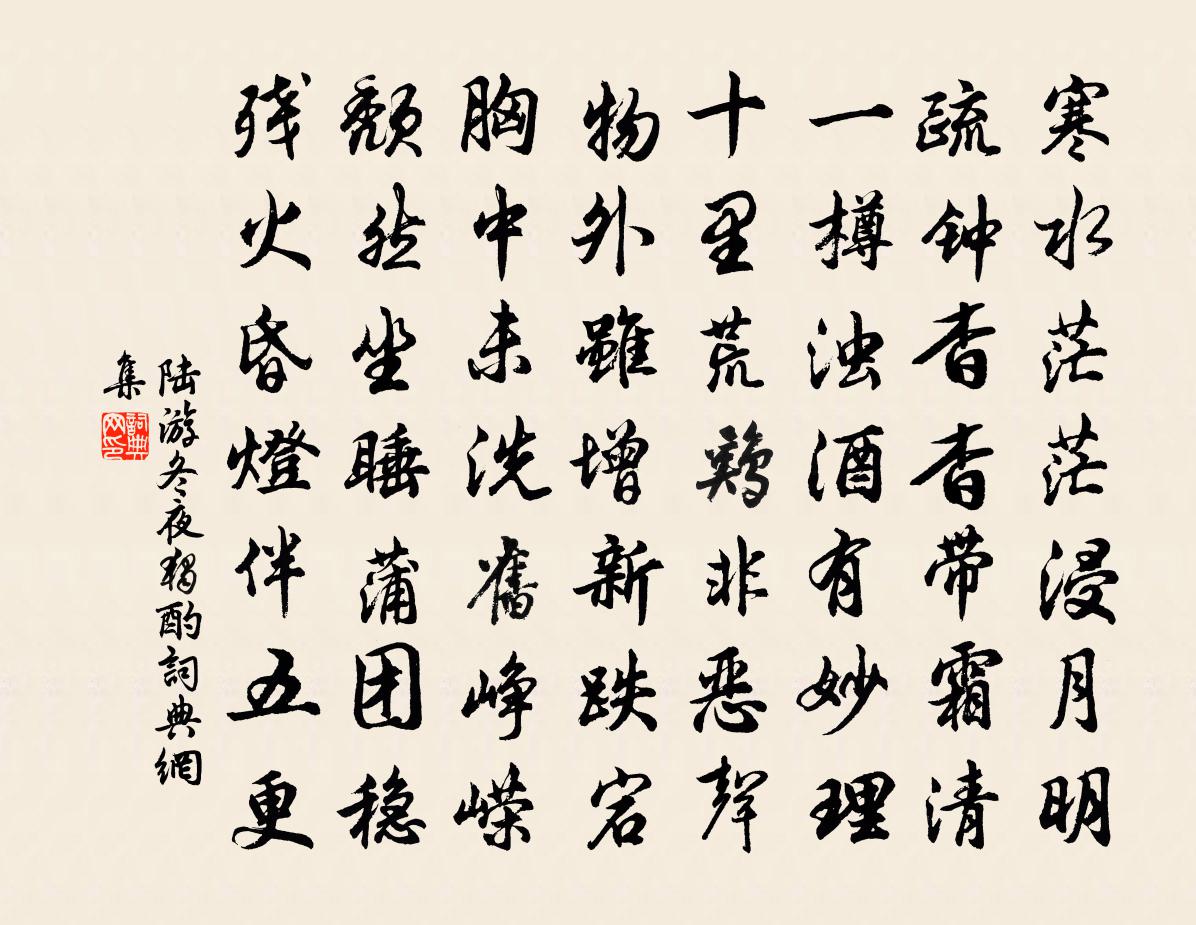 寒水茫茫浸月明
疏钟杳杳带霜清
一樽浊酒有妙理
十里荒鷄非恶聲
物外雖增新跌宕
胸中未洗舊峥嵘
颓然坐睡蒲团稳
残火昏燈伴五更
陆游冬夜獨酌詞典網
集
詞典网印